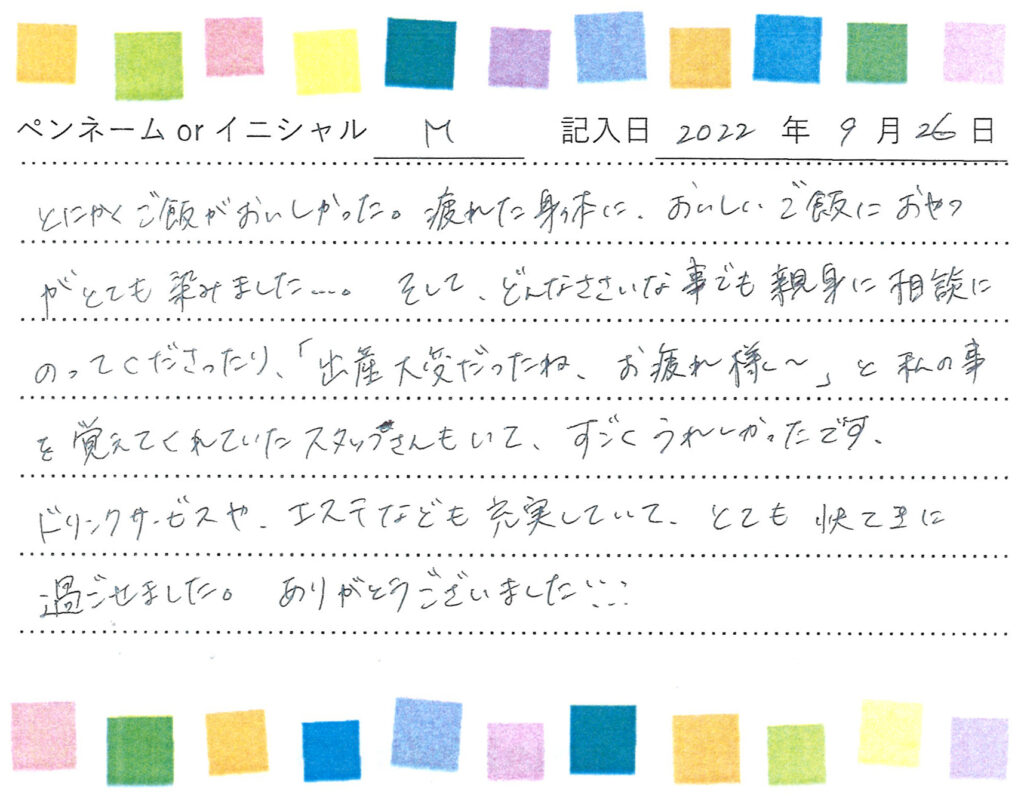 ペンネーム or イニシャル M 記入日 2022 年 9 月 26 日
とにかくご飯がおいしかった。疲れた身体に、おいしいご飯におやつ
がとても染みました…。 そして、どんなささいな事でも親身に相談に
のってくださったり、「出産大変だったね、お疲れ様〜」と私の事
を覚えてくれていたスタッフさんもいて、すごくうれしかったです。
ドリンクサービスや、エステなども充実していて、とても快てきに
過ごせました。 ありがとうございました